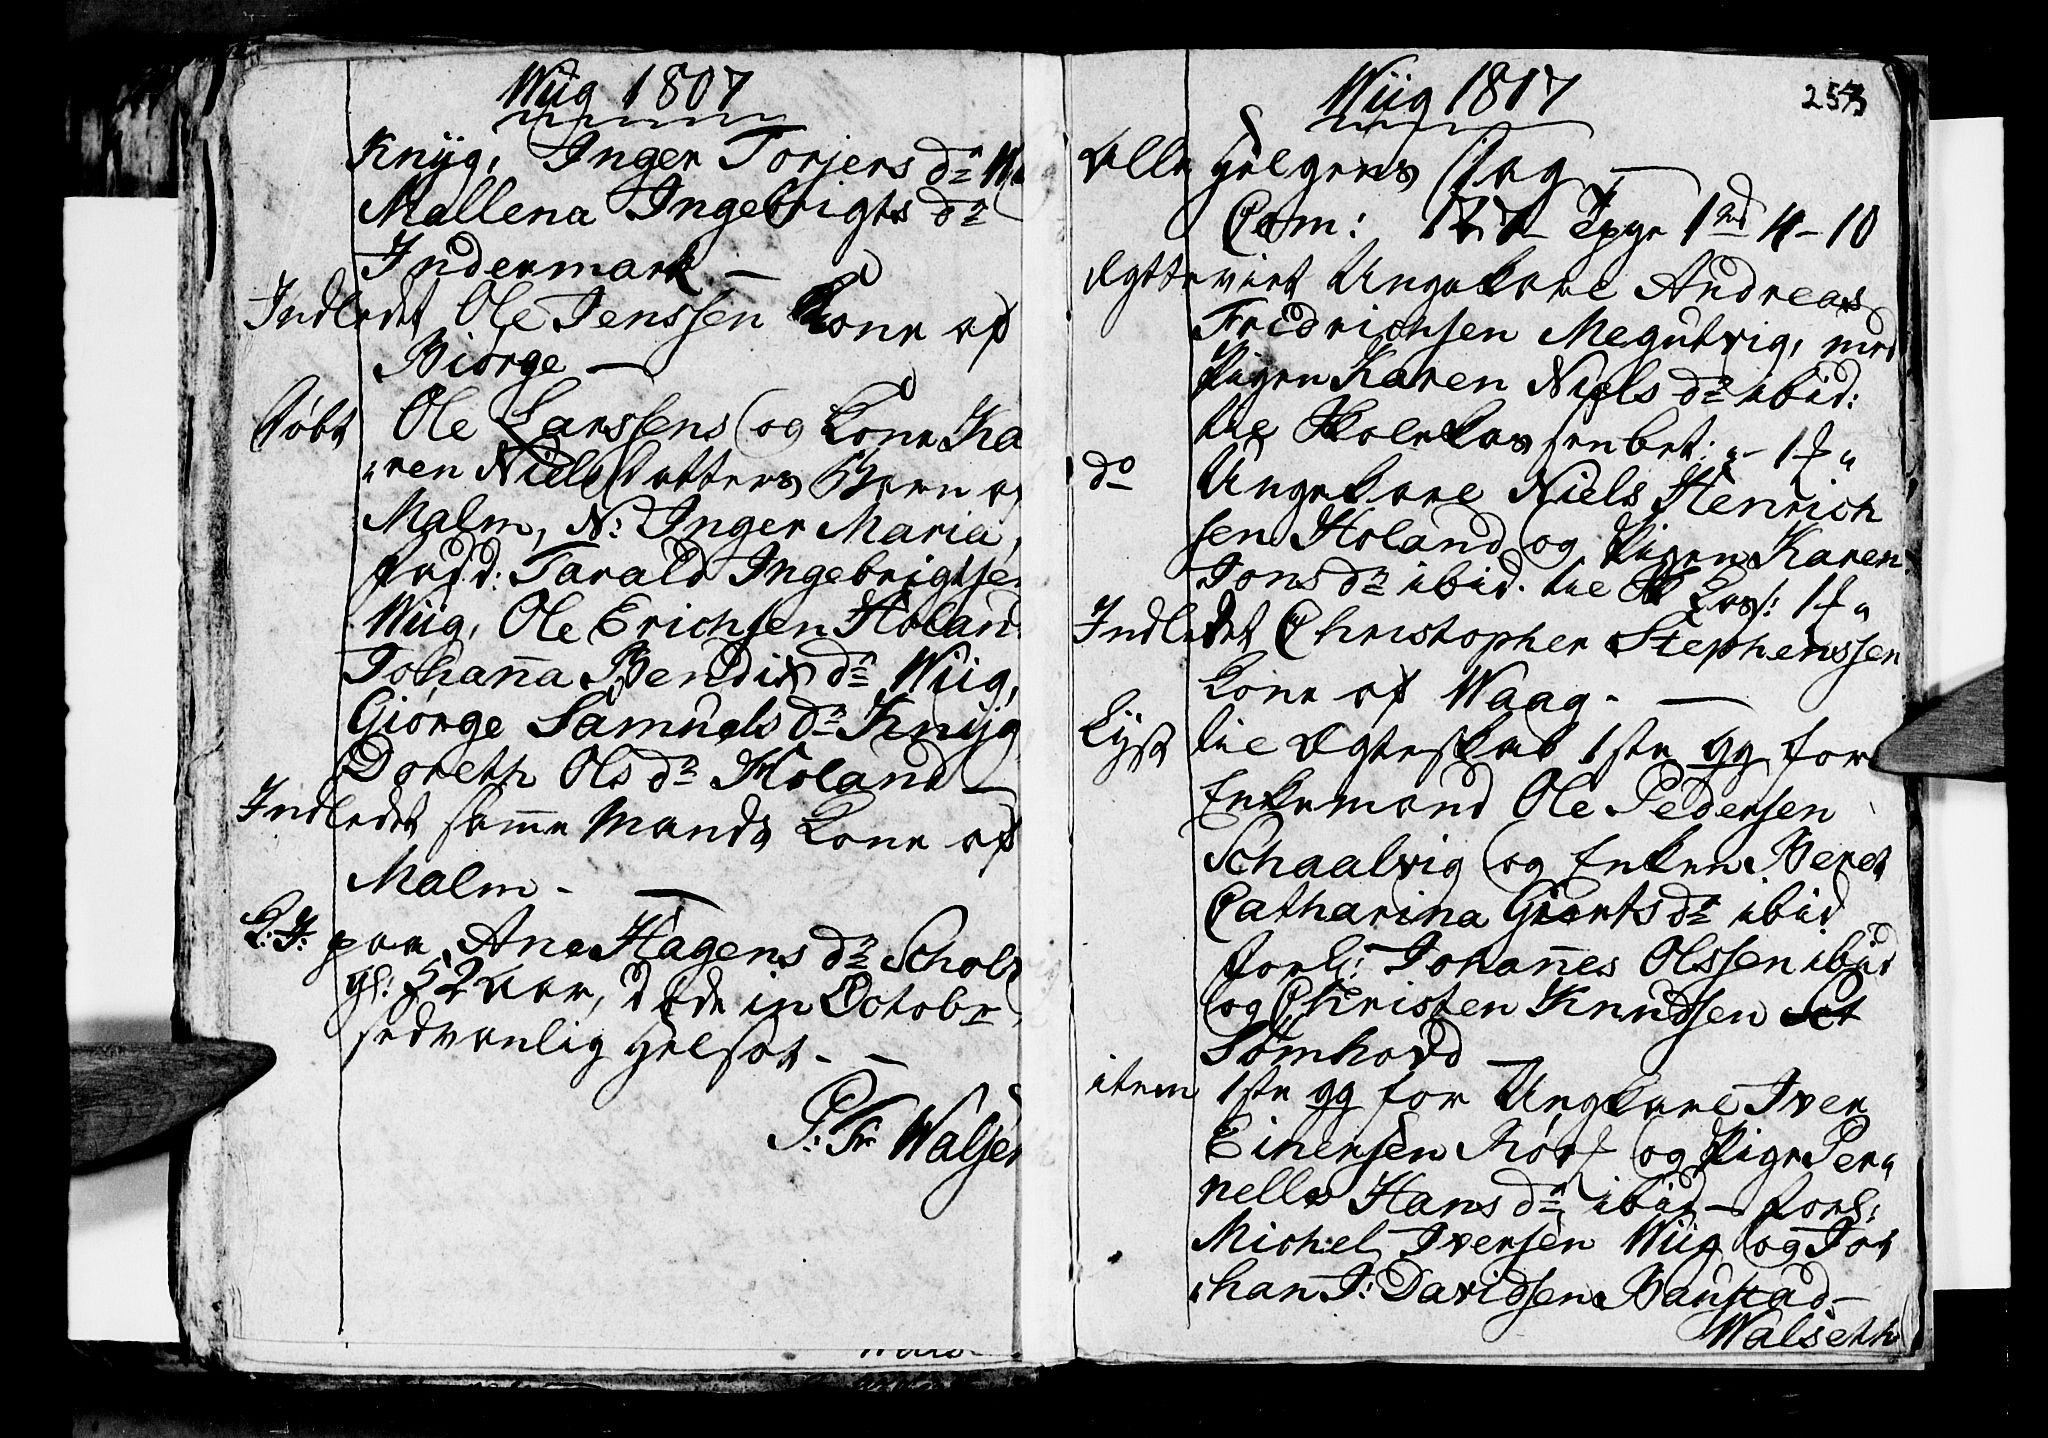 Wiig 1807
Knÿg, Inger Torjers dr
Mallena Ingebrigts dr
Indermark —
Indledet Ole Jenssen Kone af
Biörge —
Döbt Ole Larssens og Kone Ka
ren Niels datters Barn af
Malm, N: Inger Maria,
fadd: Tarald Ingebrigtse
Wiig, Ole Erichsen Holand
Johanna Bendix dr Wiig,
Giörge Samuels dr Knÿg
Doreth Ols dr Holand —
Indledet samme Mands Kone af
Malm — —
L: J: paa Ane Hagens dr
gl: 52 aar, döde in Octobr
sædvanlig Helsot — —
P: Fr Walset
Wiig 1817
257
Alle Helgens Dag —
Com: 127
Ægteviet Ungekarl Andreas
Fredrichsen Megutvig, med
Pigen Karen Niels dr ibid:
til Skolekassen bet:
do Ungekarl Niels Henrich
sen Holand og Pigen Karen
Jons dr ibid. til
Indledet Christopher Stephenssen
Kone af Waag. —
Lÿst til Ægteskab 1ste gg for
Enkemand Ole Pedersen
Schaalvig og Enken Beret
Catharina Gierts dr ibid
forl: Johannes Olssen ibid
og Christen Knudssen
Somhovd —
item 1ste gg for Ungkarl Iver
Einersen Rör og Pige Per
nelle Hans dr ibid — forl:
Michel Iversen Wiig og Jo
han J: Davidsen Baustad —
Walseth